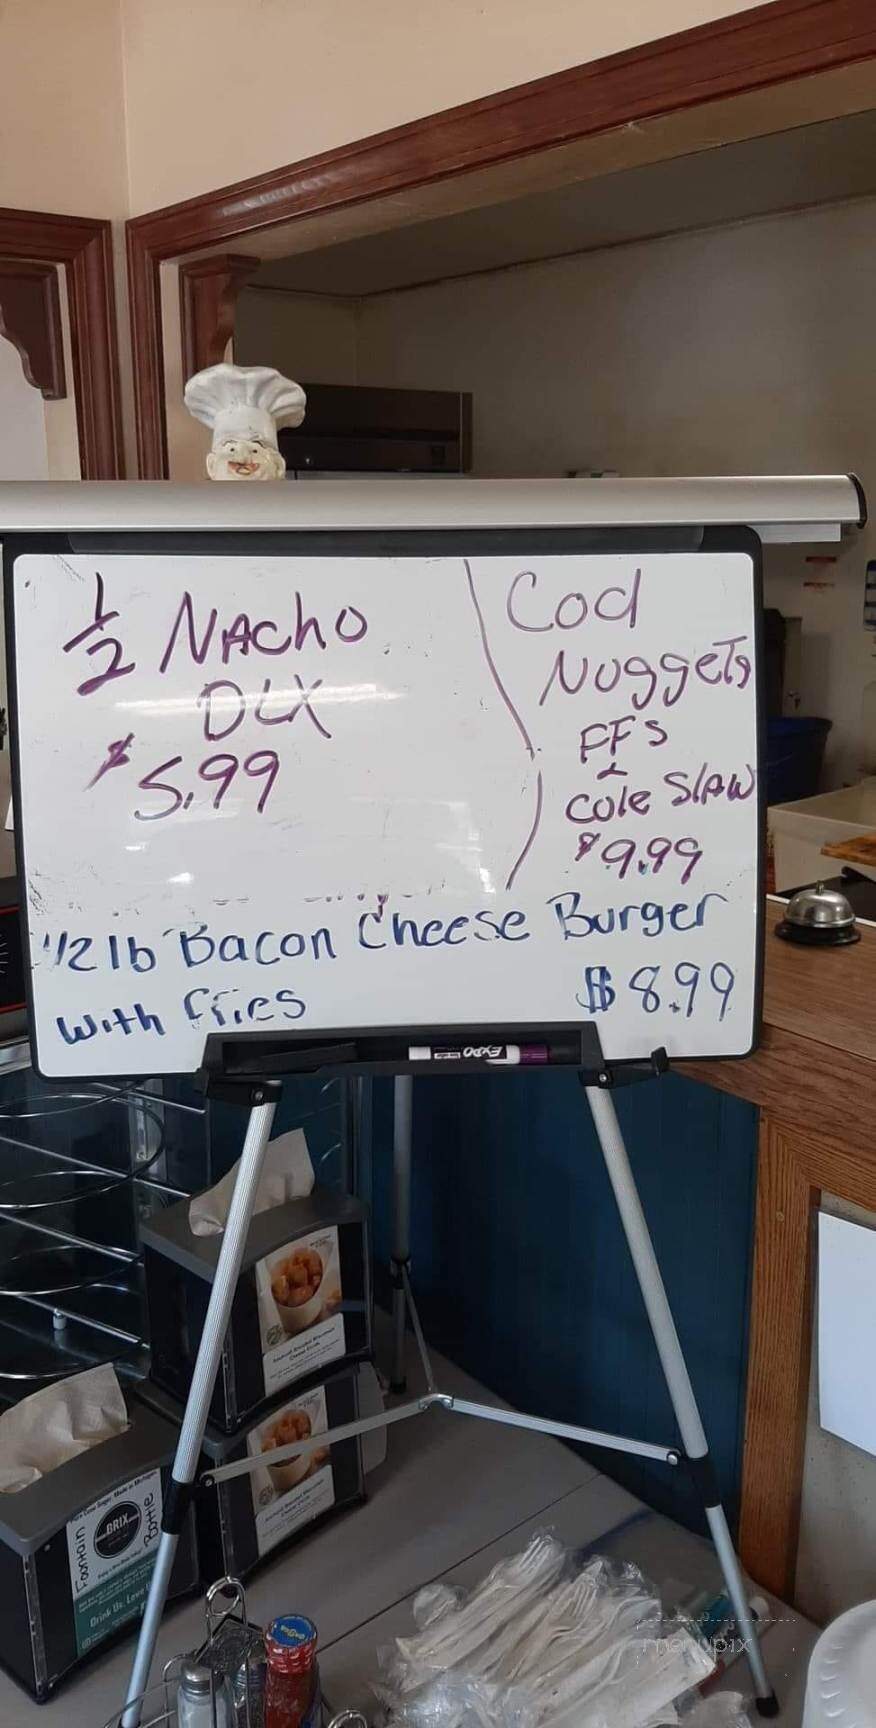 1/2 NAchO
DLX
$5.99
Cod
NuggeTs
FFs
&
Cole SLAW
$9.99
1/2 lb Bacon Cheese Burger
with fries $8.99
EXPO
Made in Michigan
BRIX
Fountain
Bottle
Drink Us. Love
menupix